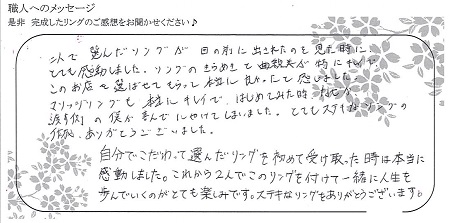 職人へのメッセージ
是非 完成したリングのご感想をお聞かせください♪
二人で 選んだリングが 目の前に出されたのを見た時に、
とても感動しました。リングのきらめきと曲線美が特にキレイで、
このお店で選ばせてもらって本当に良かったと感じました。
マリッジリングも 本当にキレイで、はじめてみた時、
渡す側の僕が喜んでしまいました。とてもステキなリングの
作成、ありがとうございました。
自分でこだわって選んだリングを初めて受け取った時は本当に
感動しました。これから2人でこのリングを付けて一緒に人生を
歩んでいくのがとても楽しみです。ステキなリングをありがとうございます。